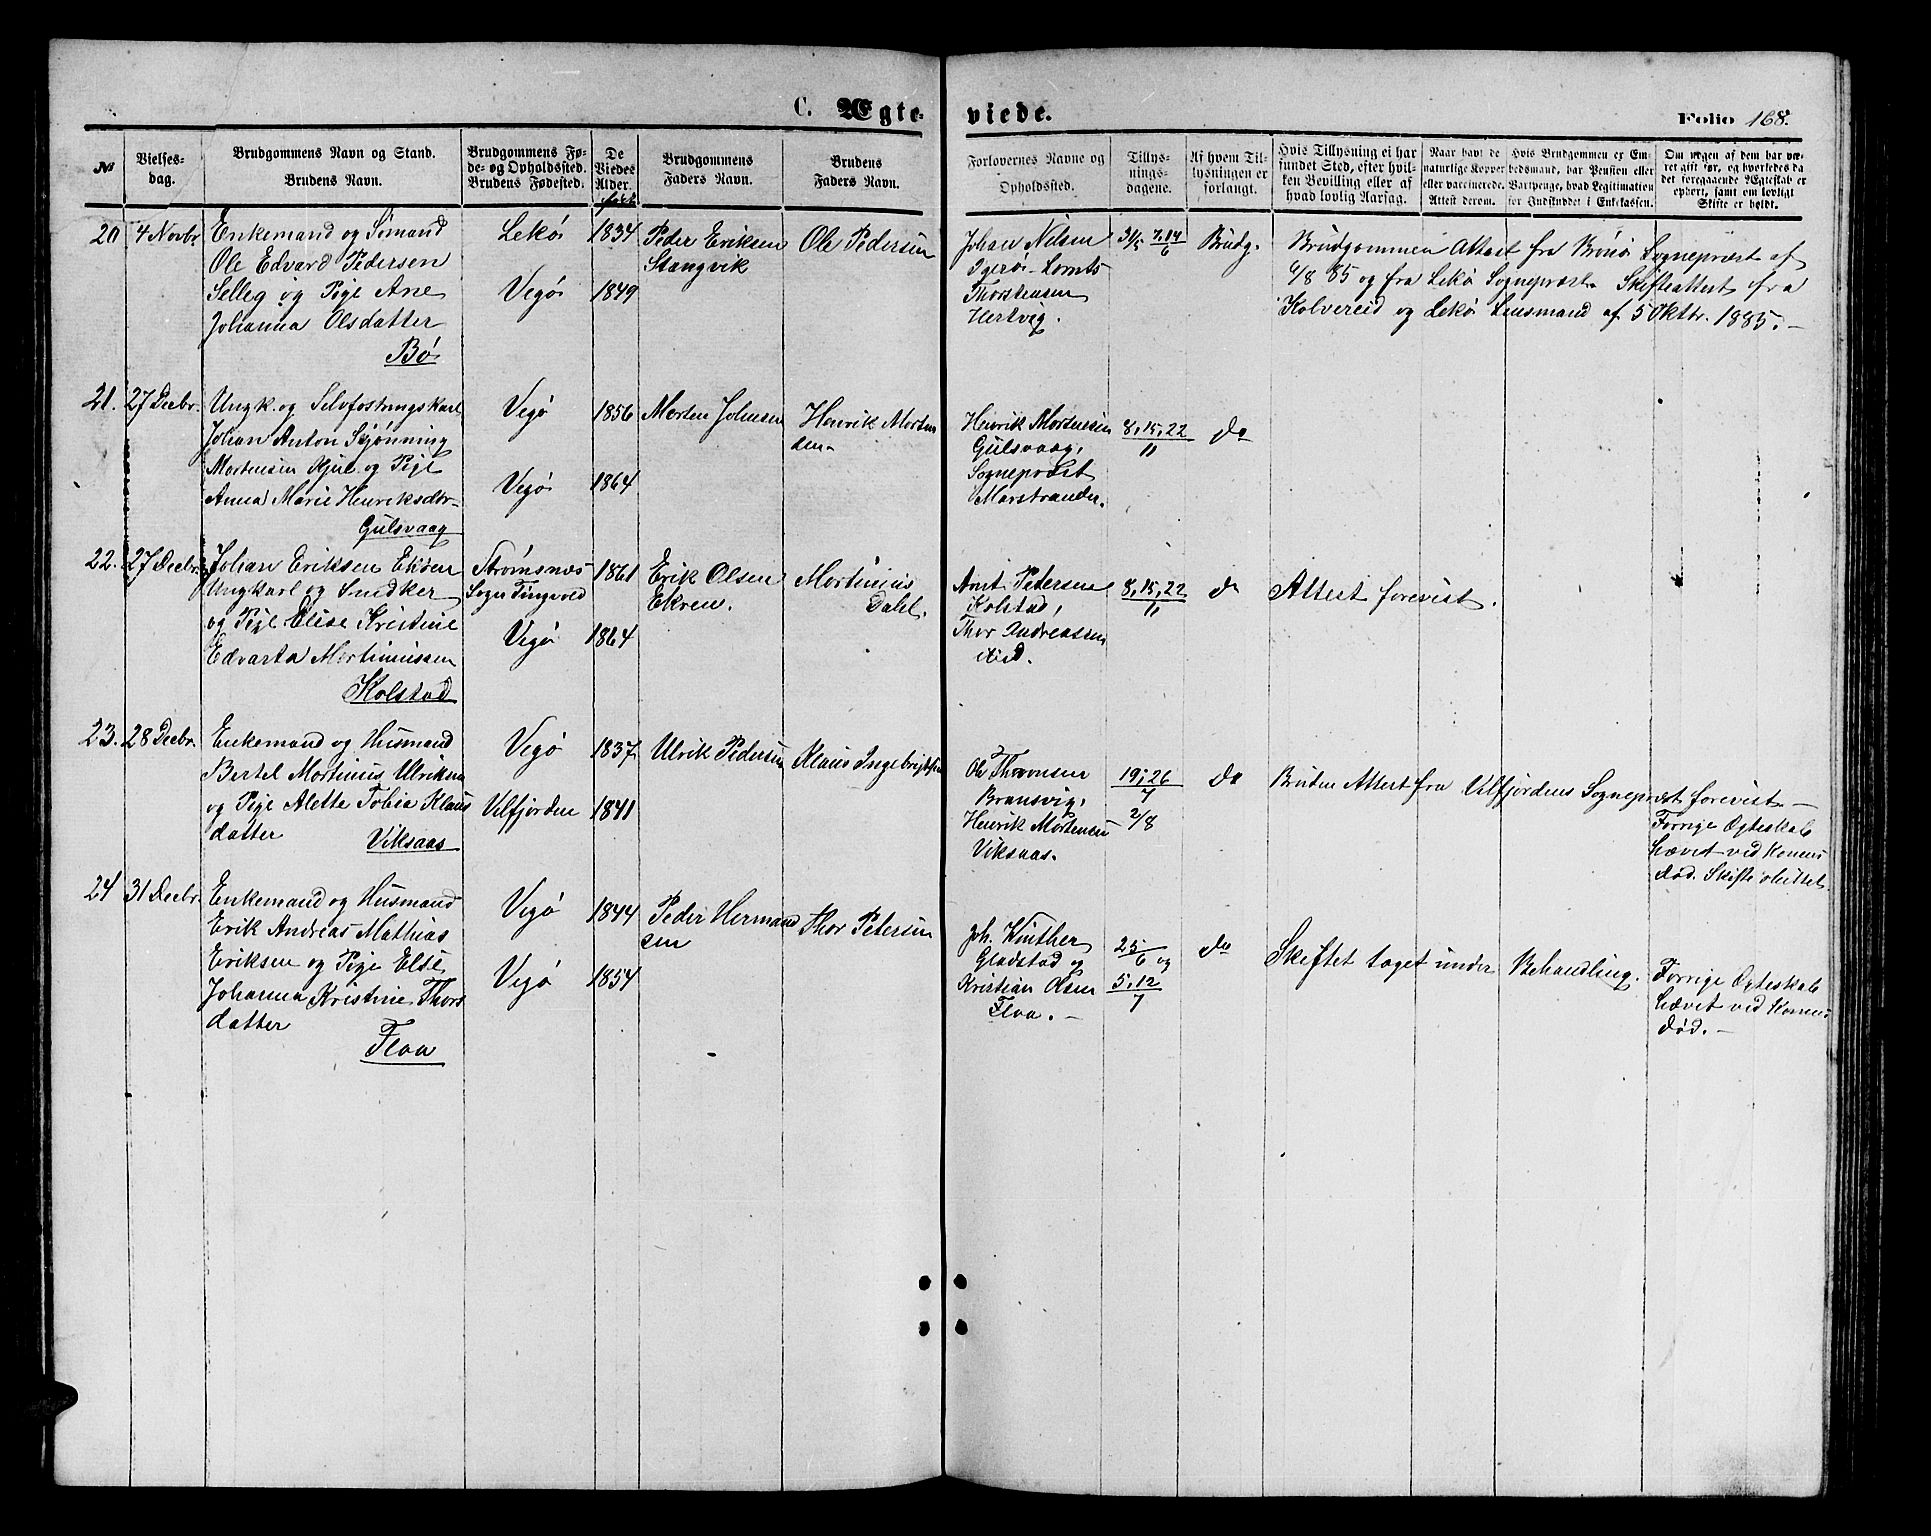 C. Ægte-
viede.
Folio 168.
№
Vielses-
dag.
Brudgommens Navn og Stand.
Brudens Navn.
Brudgommens Fø-
de- og Opholdssted.
Brudens Fødested.
De
Viedes
Alder.
født
Brudgommens
Faders Navn.
Brudens
Faders Navn.
Forlovernes Navne og
Opholdssted.
Tillys-
nings-
dagene.
Af hvem Til-
lysningen er
forlangt.
Hvis Tillysning ei har
fundet Sted, efter hvil-
ken Bevilling eller af
hvad lovlig Aarsag.
Naar havt de
naturlige Kopper
eller vaccinerede.
Attest derom.
Hvis Brudgommen er Em-
bedsmand, har Pension eller
Vartpenge, hvad Legitimation
for Indskuddet i Enkekassen.
Om nogen af dem har væ-
ret gift før, og hvorledes da
det foregaaende Ægteskab er
ophørt, samt om lovligt
Skifte er holdt.
20 4 Novbr
Enkemand og Sømand
Ole Edvard Pedersen
Selleg og Pige Ane
Johanna Olsdatter
Bø
Lekø
Vegø
1834
1849
Peder Eriksen
Stangvik
Ole Pedersen
Johan Nilsen
Igerø. Lomts
Thorstensen
Hertvig.
31/5 7,14/6
Brudg.
Brudgommen Attest fra Brønø Sognepræst af
6/8 85 og fra Lekø Sognepræst. Skifteattest fra
Kolvereid og Lekø Lensmand af 5 Oktbr. 1885.-
21. 27 Decbr.
Ungk. og Selvfostringskarl
Johan Anton Skjønning
Mortensen Kjul og Pige
Anna Marie Henriksdtr-
Gulsvaag
Vegø
Vegø
1856
1864
Morten Johnsen
Henrik Morten
sen
Henrik Mortensen
Gulsvaag,
Sognepræst
Marstrander.
8,15,22/11
do
22. 27 Decbr.
Johan Eriksen Ekren
Ungkarl og Snedker
og Pige Elise Kristine
Edvarda Mortinussen
Kolstad
Strømsnes
Sogn Tingvold
Vegø
1861
1864
Erik Olsen
Ekren.
Mortinius
Dahl.
Arnt Petersen
Kolstad,
Thor Andreassen
ibid.
8,15,22/11
do
Attest forevist.
23. 28 Decbr.
Enkemand og Husmand
Bertel Mortinus Ulriksen
og Pige Alette Tobia Klaus
datter
Viksaas
Vegø
Velfjorden
1837
1841
Ulrik Pedersen
Klaus Ingebrigtsen
Ole Thomsen
Bransvig,
Henrik Mortensen
Viksaas.
19,26/7
2/8
do
Bruden Attest fra Velfjordens Sognepræst forevist.-
Forrige Egteskab
hævet ved Konens
død. Skifte sluttet
24 31 Decbr.
Enkemand og Husmand
Erik Andreas Mathias
Eriksen og Pige Else
Johanna Kristine Thors
datter
Floa
Vegø
Vegø
1844
1854
Peder Hermand
sen
Thor Petersen
Joh. Winther
Gladstad og
Kristian Olsen
Floa.-
25/6 og
5,12/7
do
Skiftet taget under Behandling.
Forrige Egteskab
hævet ved Konens
død.-